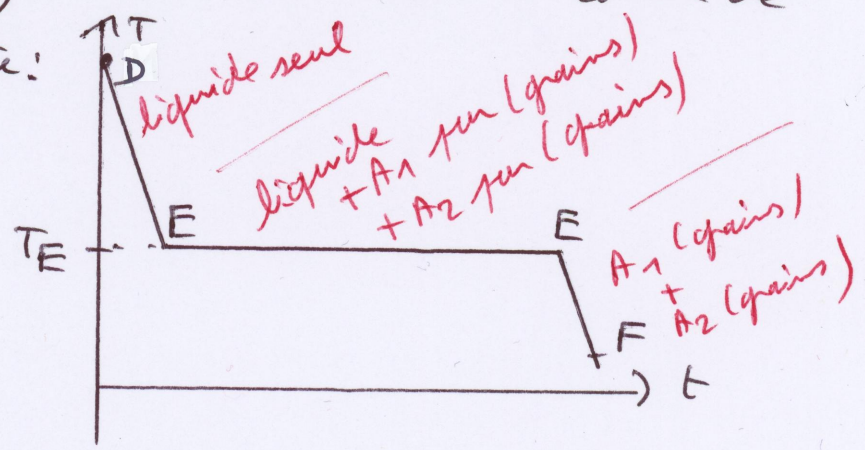 T
D
liquide seul
liquide
+ A1 pur (grains)
+ A2 pur (grains)
A1 (grains)
+
A2 (grains)
E
E
TE
F
t